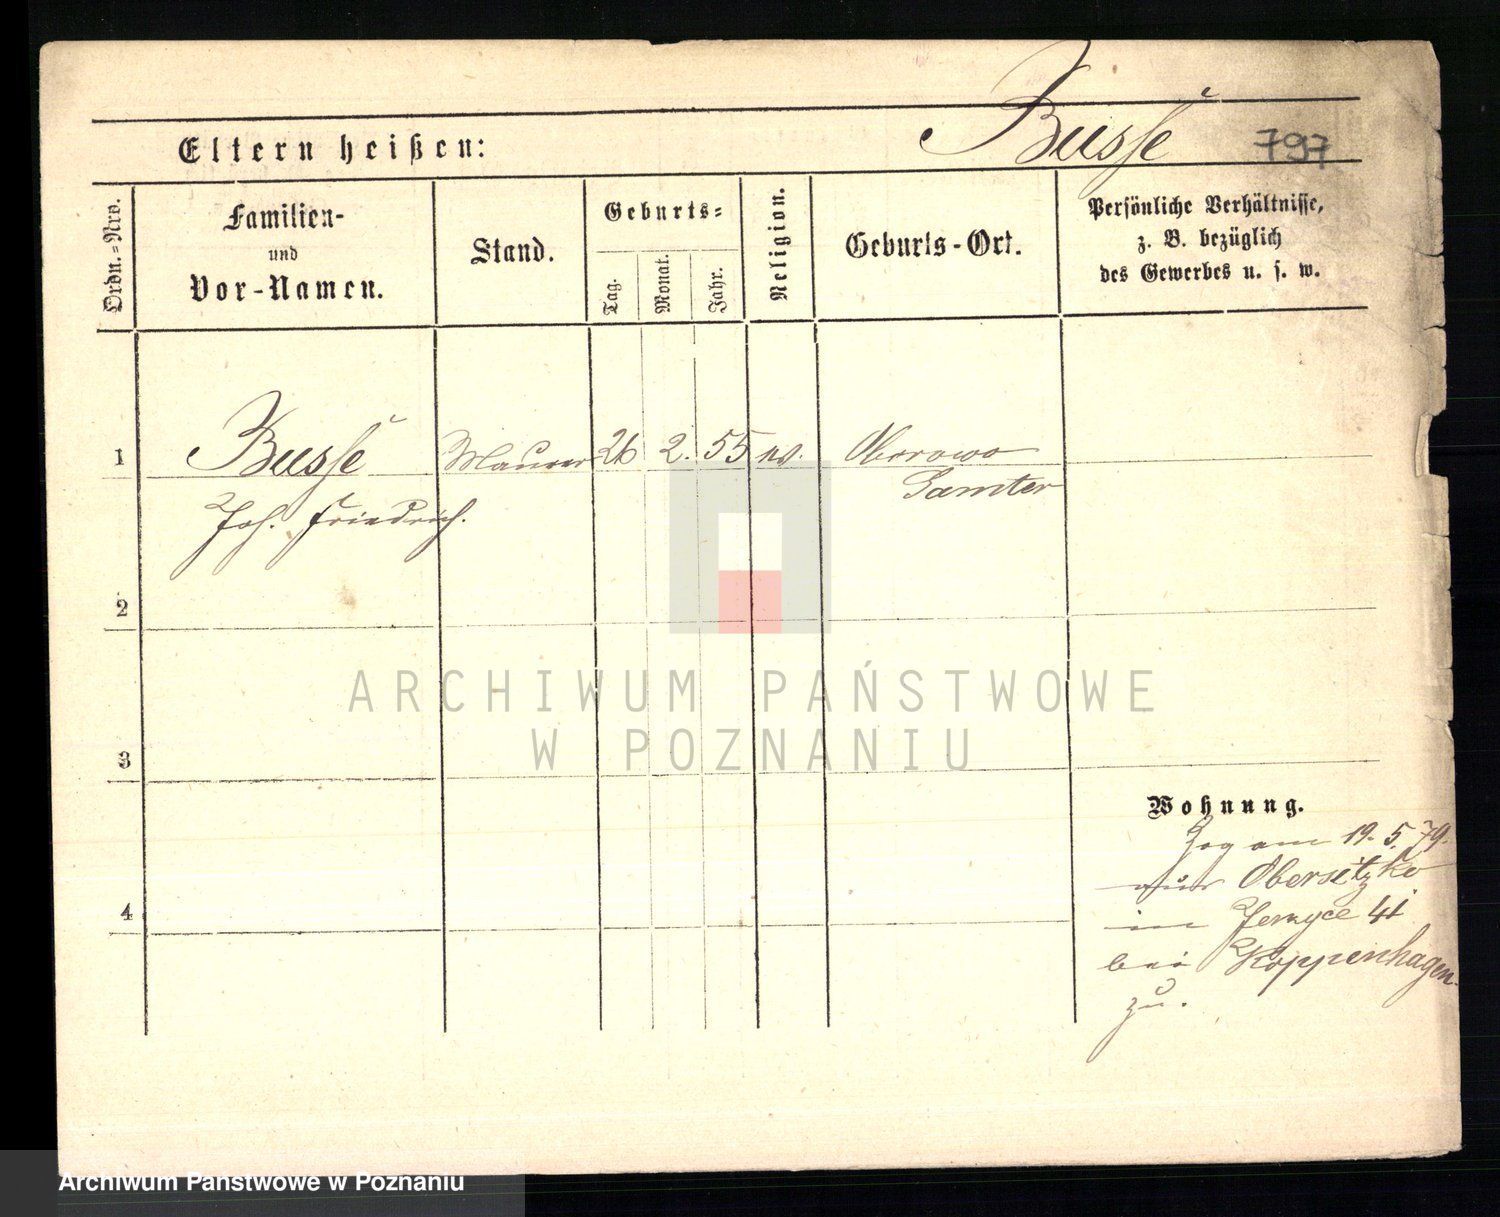 Busse 797
Eltern heißen:
Ordn.=Nro.
Familien-
und
Vor-Namen.
Stand.
Geburts=
Tag.
Monat.
Jahr.
Religion.
Geburts-Ort.
Persönliche Verhältnisse,
z. B. bezüglich
des Gewerbes u. s. w.
1 Busse Maurer 26 2. 55 ev. Oborowo
Samter
Joh. Friedrich.
2
3
4
Wohnung.
Zog am 19. 5. 79.
aus Obersitzko
in Jerzyce 41
bei Koppenhagen
zu.
ARCHIWUM PAŃSTWOWE
W POZNANIU
Archiwum Państwowe w Poznaniu